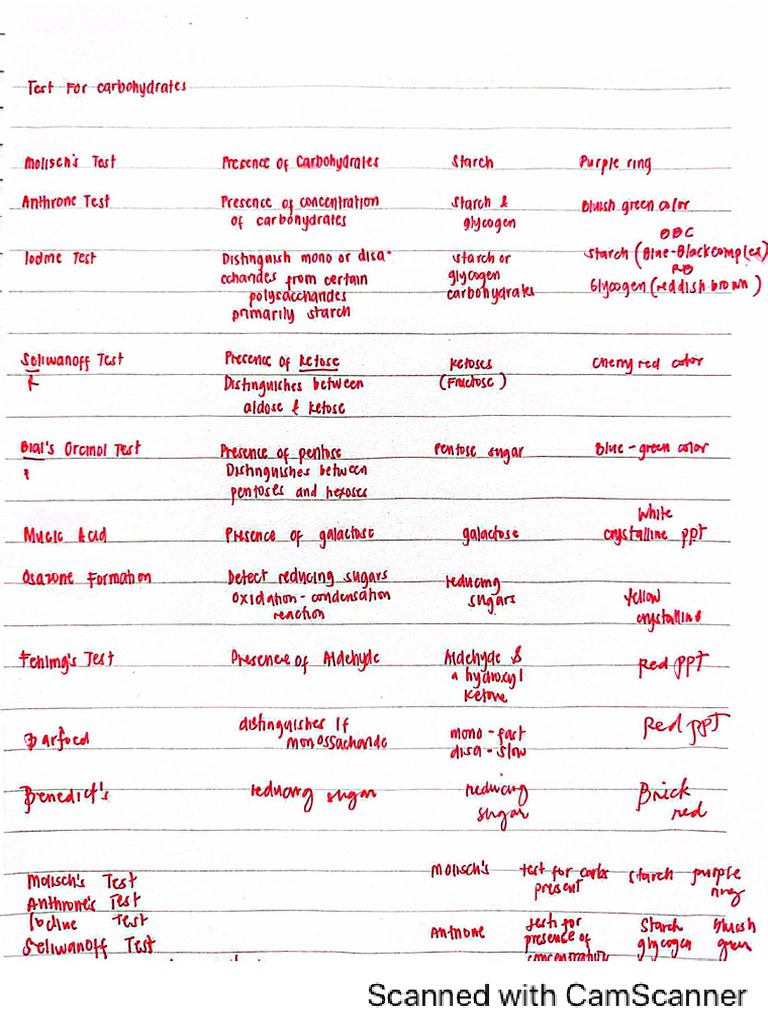 Test For Carbohydrates
Molisch's Test Presence of Carbohydrates Starch Purple ring
Anthrone Test Presence of concentration Starch & Bluish green color
of carbohydrates glycogen
BBC
Iodine Test Distinguish mono or disa- starch or Starch (Blue-Black complex)
RB
cchandes from certain glycogen Glycogen (reddish brown)
polysacchandes carbohydrates
primarily starch
Seliwanoff Test Presence of ketose ketoses Cherry red color
k Distinguishes between (Fructose)
aldose & ketose
Bial's Orcinol Test Presence of pentose Pentose sugar Blue-green color
P Distinguishes between
pentoses and hexoses
White
Mucic Acid Presence of galactose galactose crystalline ppt
Osazone Formation Detect reducing sugars reducing
oxidation-condensation sugars Yellow
reaction crystalline
Fehling's Test Presence of Aldehyde Aldehyde & Red PPT
a hydroxyl
ketone
Barfoed distinguishes if mono - fast Red ppt
monossacharide disa - slow
Benedict's reducing sugar reducing Brick
sugar red
Molisch's Test Molisch's test for carbs starch purple
present ring
Anthrone's Test
Iodine Test Anthrone test for Starch Bluish
Seliwanoff Test presence of glycogen green
Scanned with CamScanner